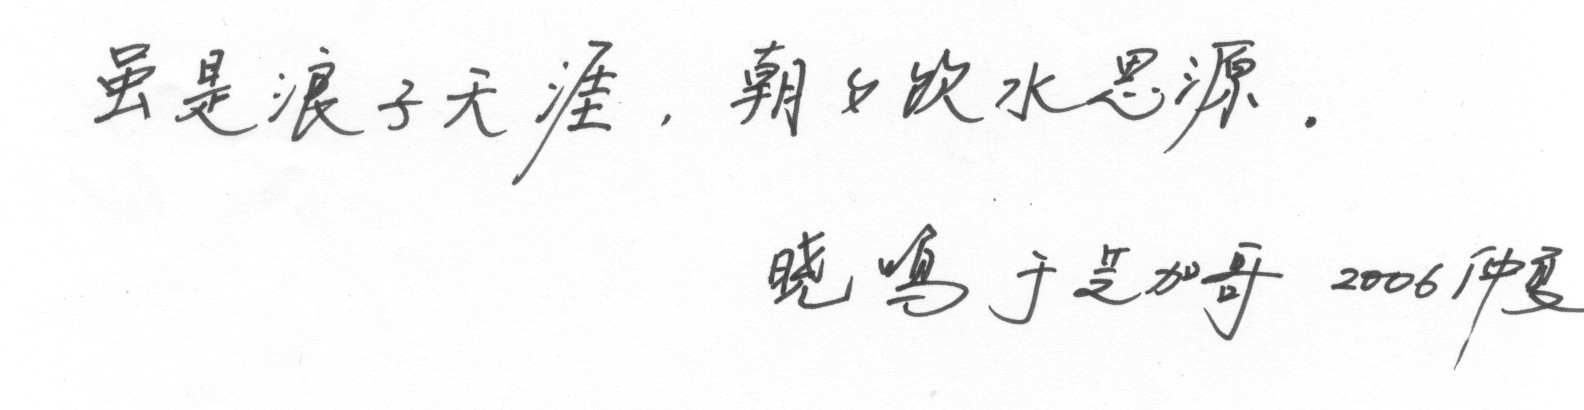 虽是浪子天涯，朝夕饮水思源.
晓鸣于芝加哥 2006仲夏